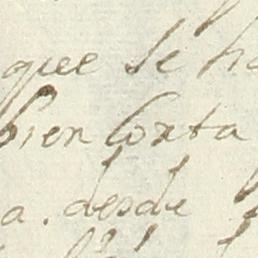 que se ha
bien corta
a. desde